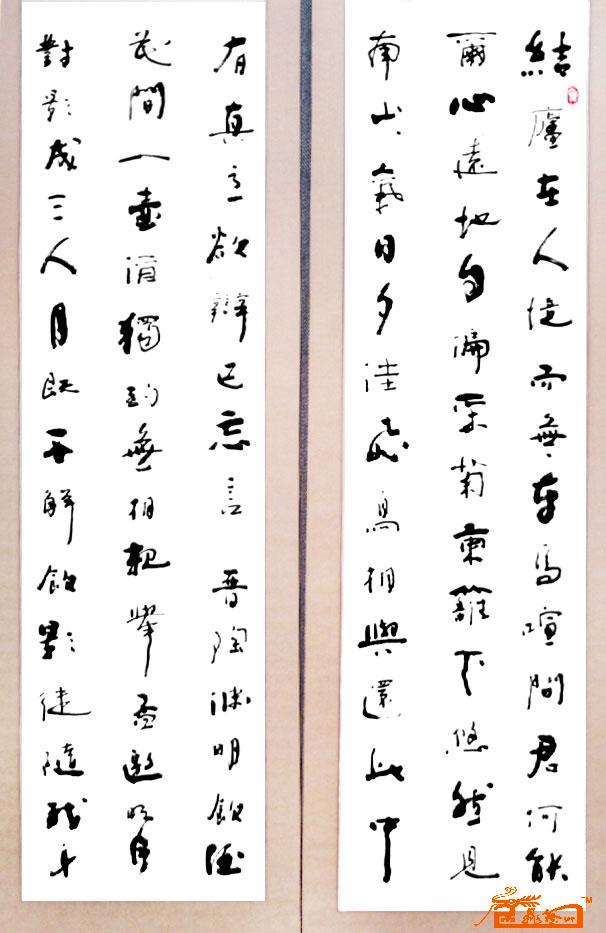 結廬在人境而無車馬喧問君何能
爾心遠地自偏采菊東籬下悠然見
南山々氣日夕佳飛鳥相與還此中
有真意欲辯已忘言 晋陶淵明飲酒
花間一壺酒獨酌無相親舉盃邀明月
對影成三人月既不解飲影徒隨我身